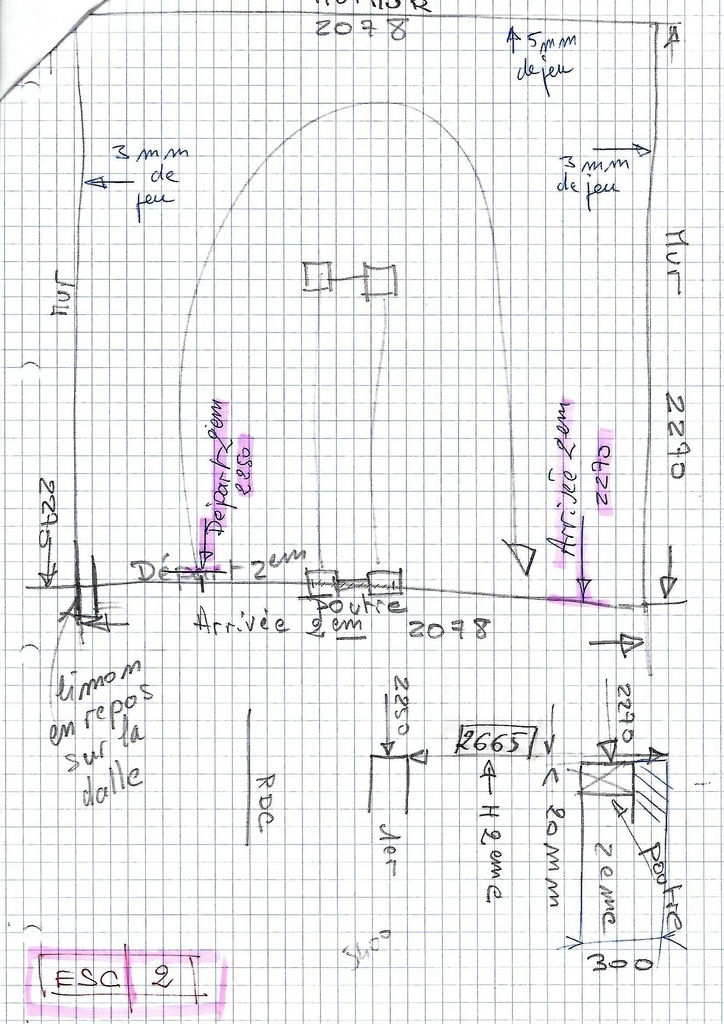 2078
↑ 5mm
de jeu
3 mm
de
jeu
3 mm
de jeu
Mur
Mur
2290
2275
Départ 2em
2250
Arrivée 2em
2270
Départ 2em
poutre
Arrivée 2em
2078
limon
en repos
sur la
dalle
RDC
2250
1er
2665
H 2eme
< 20 mm
2270
2eme
poutre
300
5400
ESC 2